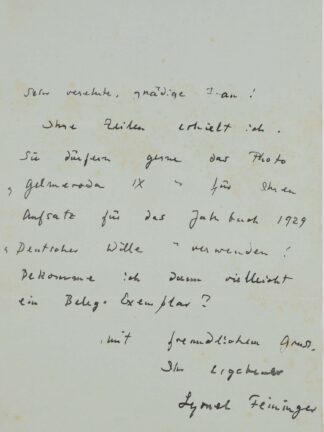 Sehr verehrte, gnädige Frau!
Ihre Zeilen erhielt ich.
Sie dürfen gerne das Photo
„Gelmeroda IX" für Ihren
Aufsatz für das Jahrbuch 1929
„Deutscher Wille" verwenden!
Bekomme ich dann vielleicht
ein Beleg-Exemplar?
mit freundlichem Gruss,
Ihr ergebener
Lyonel Feininger